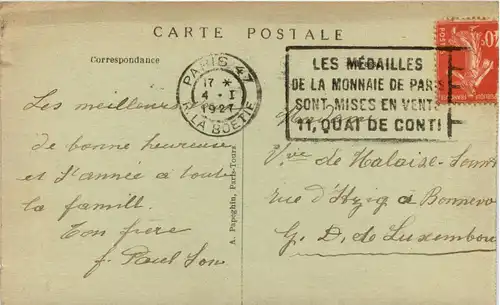 CARTE POSTALE
Correspondance
PARIS 47
17 *
4 - I
1927
R. LA BOETIE
LES MÉDAILLES
DE LA MONNAIE DE PARIS
SONT MISES EN VENTE
11, QUAI DE CONTI
POSTES
Les meilleurs
de bonne heureuse
et St année a toute
la famill.
Ton frère
f. Paul Son
A. Papeghin, Paris-Tours
de Malaise
rue d'Itzig à Bonnevo
G. D. de Luxembou